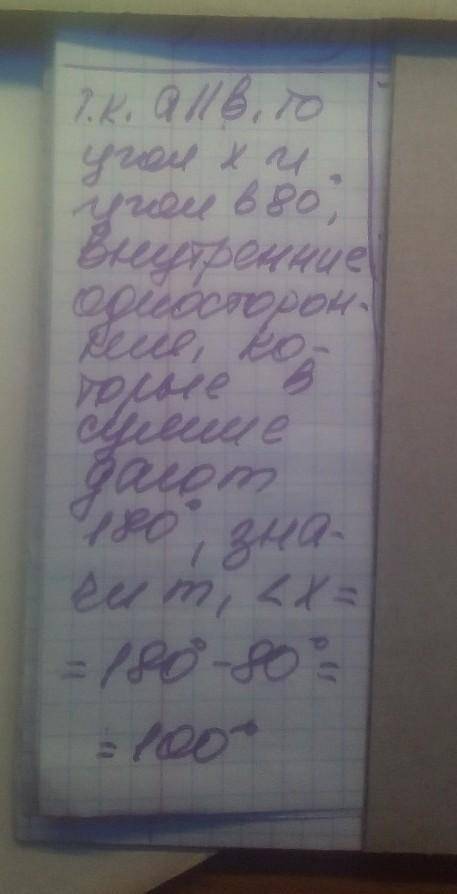 т.к. a||в, то
угол x и
угол в 80°,
внутренние
односторон-
ние, ко-
торые в
сумме
дают
180°, зна-
чит, ∠X=
=180°-80°=
=100°